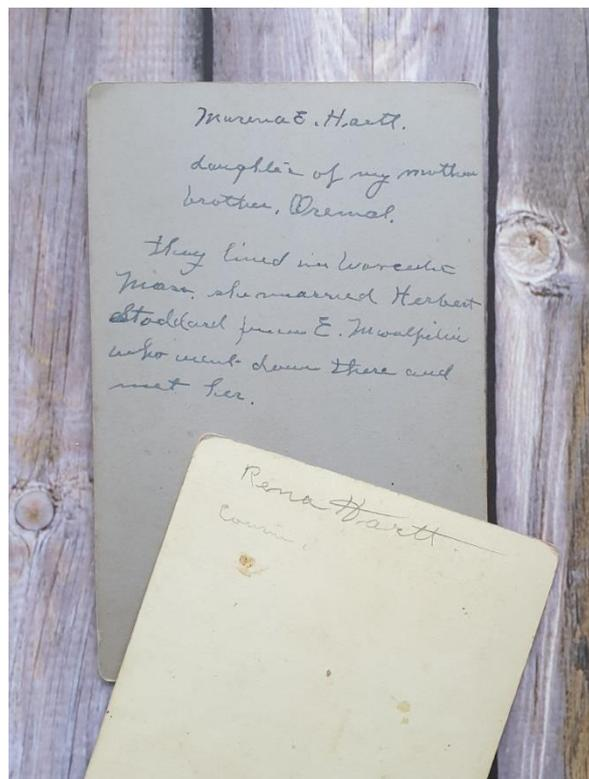 E. Hartt.
daughter of my mother
brother,
they lived in Worcester
Mass. she married Herbert
Stoddard from E. Montpelier
who went down there and
met her.
Rena Hartt.
Cousin